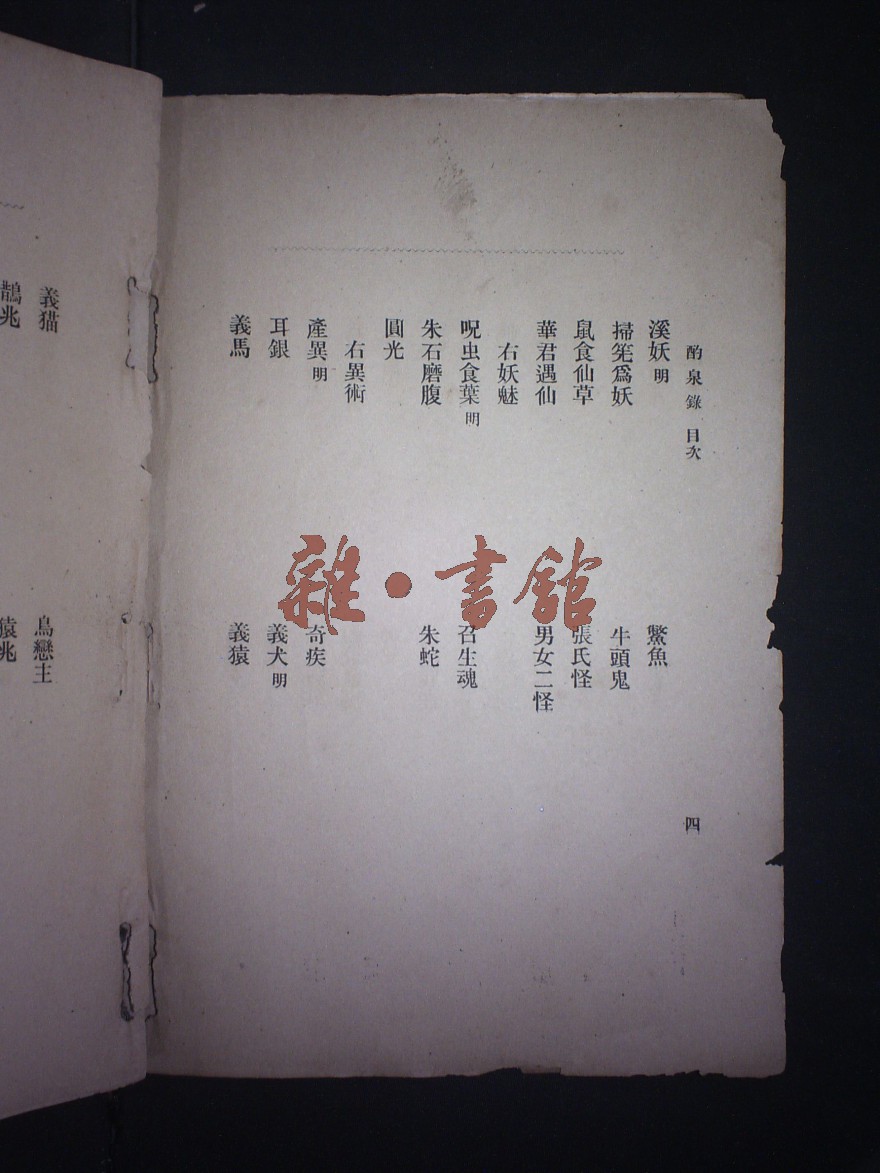 酌泉錄 目次 四
溪妖 明 鱉魚
掃筅爲妖 牛頭鬼
鼠食仙草 張氏怪
華君遇仙 男女二怪
右妖魅
呪虫食葉 明 召生魂
朱石磨腹 朱蛇
圓光
右異術
產異 明 奇疾
耳銀 義犬 明
義馬 義猿
義猫 鳥戀主
鵲兆 猿兆
雜·書館